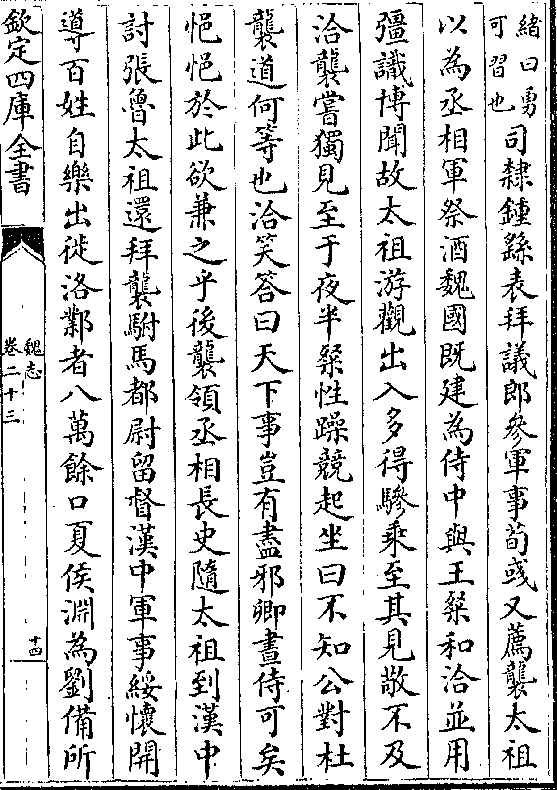 緒曰勇
可習也
司隸鍾繇表拜議郎參軍事荀彧又薦襲太祖
以為丞相軍祭酒魏國既建為侍中與王粲和洽並用
彊識博聞故太祖游觀出入多得驂乘至其見敬不及
洽襲嘗獨見至于夜半粲性躁競起坐曰不知公對杜
襲道何等也洽笑答曰天下事豈有盡邪卿晝侍可矣
悒悒於此欲兼之乎後襲領丞相長史隨太祖到漢中
討張魯太祖還拜襲駙馬都尉留督漢中軍事綏懷開
導百姓自樂出徙洛鄴者八萬餘口夏侯淵為劉備所
欽定四庫全書
魏志
卷二十三
十四